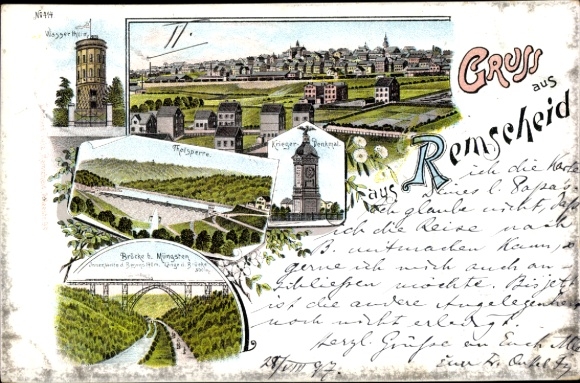 No 414
Wasserthurm.
II.
Gruss
aus
Remscheid
Thalsperre.
Krieger-Denkmal.
aus
ich die Karte
eines l. Papas
Ich glaube nicht, daß
ich die Reise nach
mitmachen kann, so
gerne ich mich auch an-
schließen möchte. Bis jetzt
ist die andere Angelegenheit
noch nicht erledigt.
Herzl. Grüße an Euch Alle
Euer
Brücke b. Müngsten
28/VIII 97.